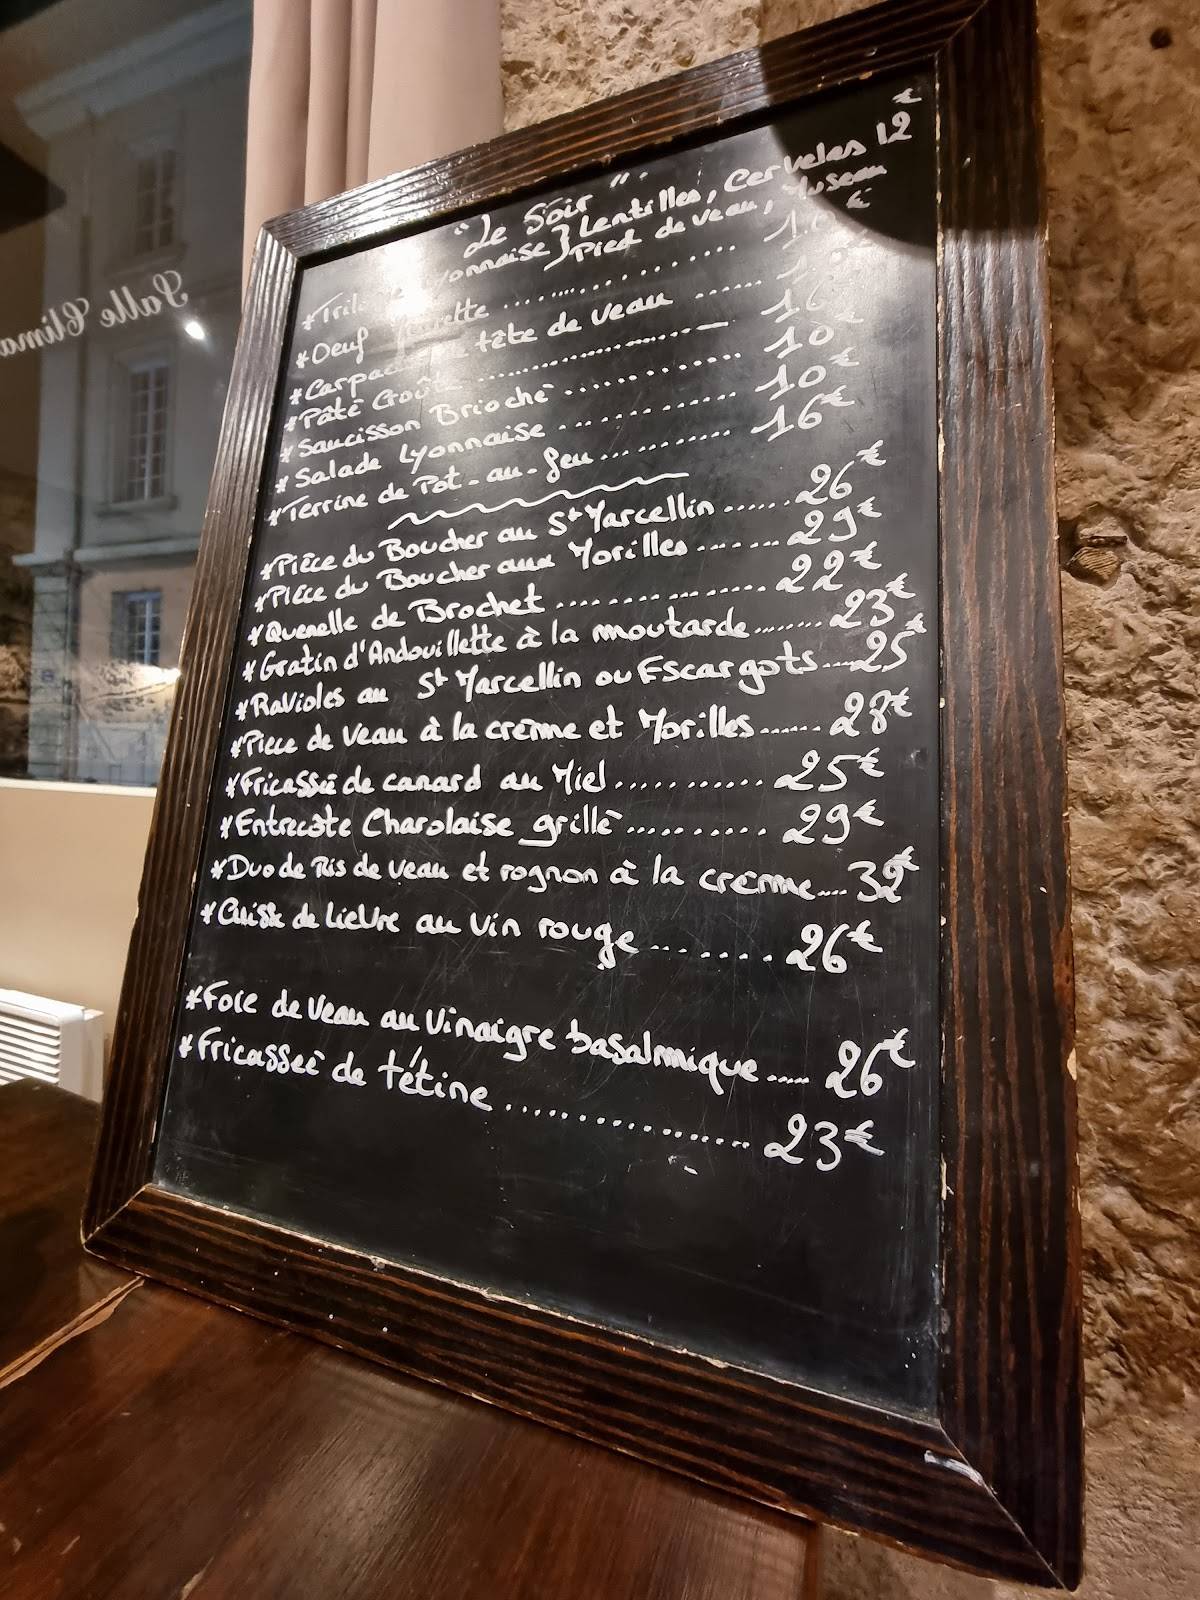 "Le Soir"
Lentilles, Cervelas 12€
*Trilo Lyonnaise } Pied de veau, Museau
*Oeuf meurette .......... €
*Carpac tête de veau ......
*Pâté Croûte .......... 16
*Saucisson Brioché .......... 10
*Salade Lyonnaise .......... 10€
*Terrine de Pot-au-feu .......... 16€
*Pièce du Boucher au St Marcellin ..... 26€
*Pièce du Boucher aux Morilles ...... 29€
*Quenelle de Brochet .......... 22€
*Gratin d'Andouillette à la moutarde ....... 23€
*Ravioles au St Marcellin ou Escargots .... 25€
*Piece de veau à la crème et Morilles ...... 28€
*Fricasseé de canard au Miel .......... 25€
*Entrecôte Charolaise grillé .......... 29€
*Duo de Ris de veau et rognon à la crème .... 32€
*Cuisse de Lievre au vin rouge ....... 26€
*Foie de veau au Vinaigre basalmique ..... 26€
*Fricasseé de tétine .......... 23€
Salle Clima